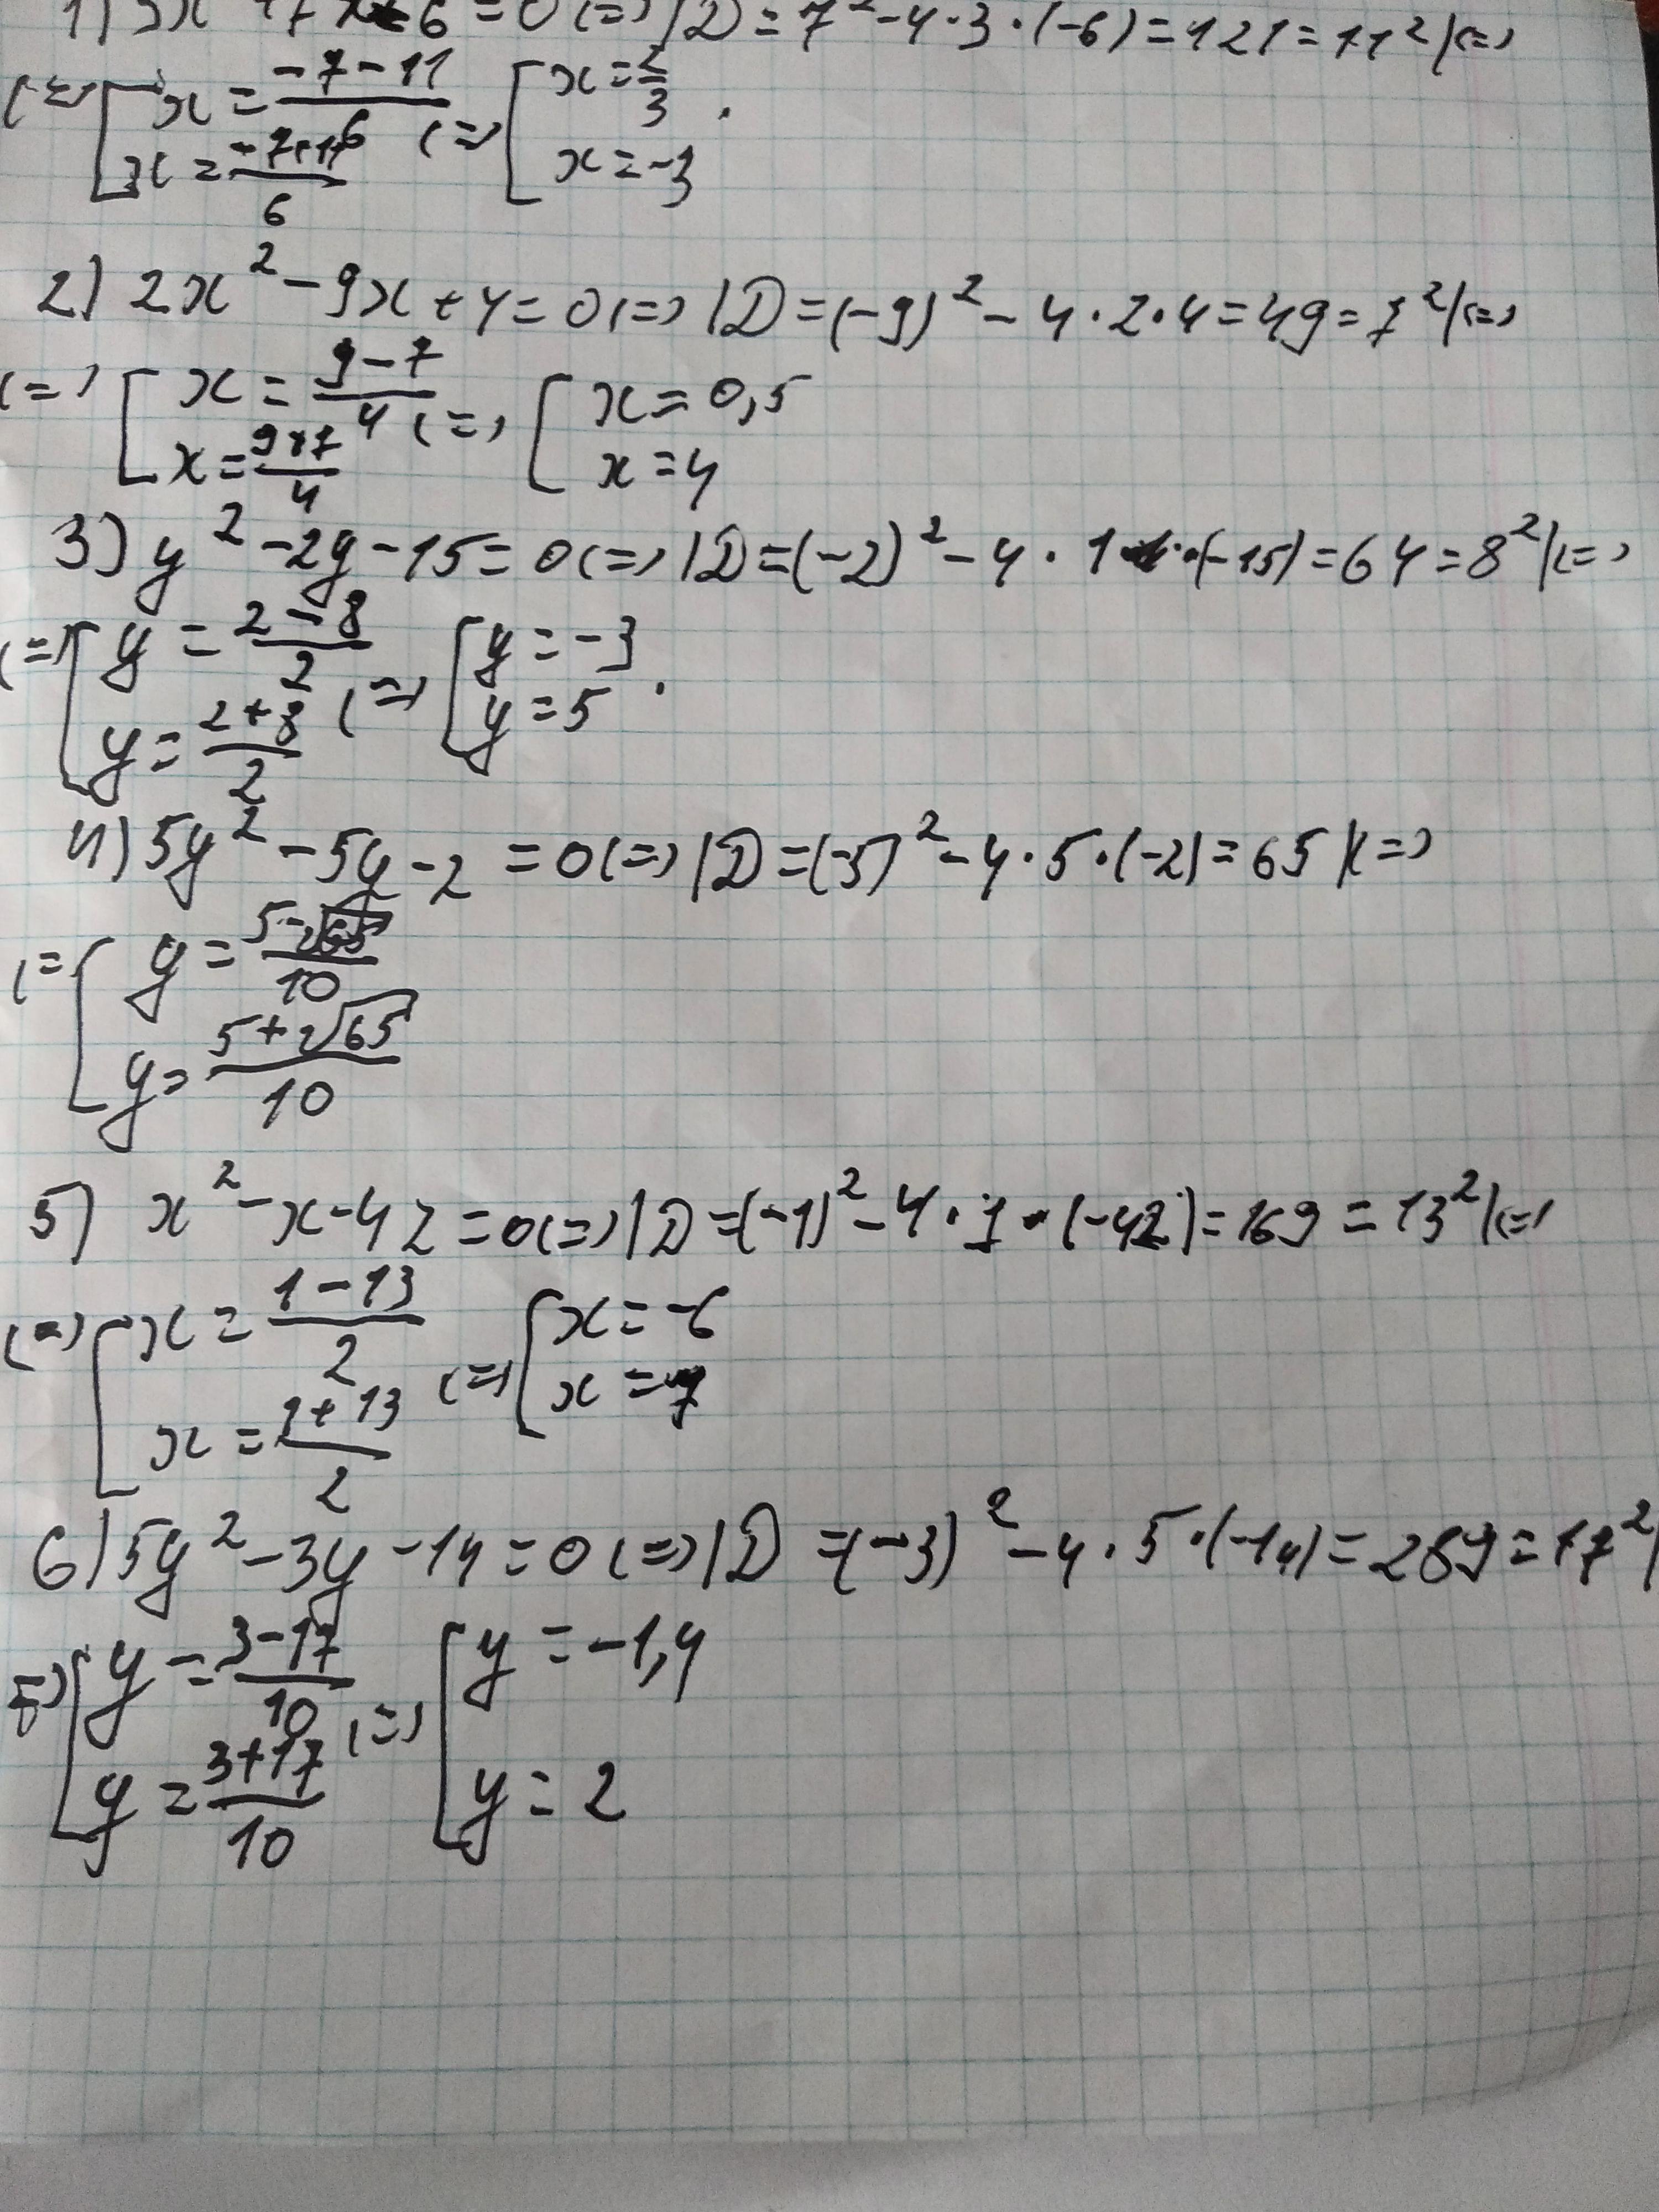 1) 3x² + 7x - 6 = 0 <=> |D = 7² - 4 · 3 · (-6) = 121 = 11²| <=>
<=> [ x = (-7-11)/6 <=> [ x = 2/3 .
x = (-7+11)/6 x = -3
2) 2x² - 9x + 4 = 0 <=> |D = (-9)² - 4 · 2 · 4 = 49 = 7²| <=>
<=> [ x = (9-7)/4 <=> [ x = 0,5
x = (9+7)/4 x = 4
3) y² - 2y - 15 = 0 <=> |D = (-2)² - 4 · 1 · (-15) = 64 = 8²| <=>
<=> [ y = (2-8)/2 <=> [ y = -3 .
y = (2+8)/2 y = 5
4) 5y² - 5y - 2 = 0 <=> |D = (-5)² - 4 · 5 · (-2) = 65| <=>
<= [ y = (5-√65)/10
y = (5+√65)/10
5) x² - x - 42 = 0 <=> |D = (-1)² - 4 · 1 · (-42) = 169 = 13²| <=>
<=> [ x = (1-13)/2 <=> [ x = -6
x = (1+13)/2 x = 7
6) 5y² - 3y - 14 = 0 <=> |D = (-3)² - 4 · 5 · (-14) = 289 = 17²|
=> [ y = (3-17)/10 <=> [ y = -1,4
y = (3+17)/10 y = 2